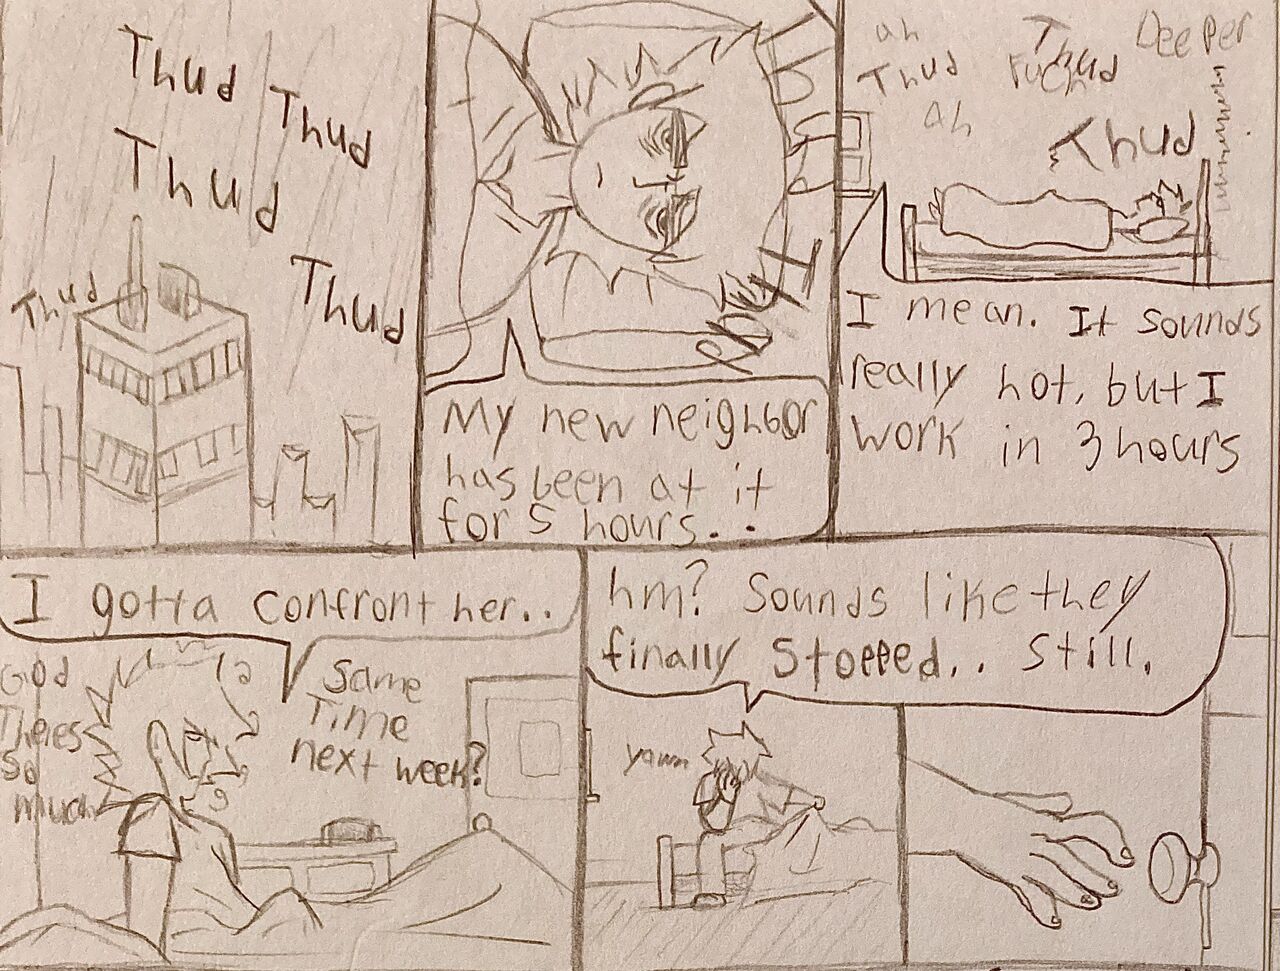 Thud
Thud
Thud
Thud
Thud
My new neighbor
has been at it
for 5 hours..
ah
Thud
ah
Thud
Fuck
Deeper
Thud
I mean. It sounds
really hot, but I
work in 3 hours
I gotta confront her..
God
Theres
so
much
Same
Time
next week?
hm? Sounds like they
finally stopped.. still.
yawn